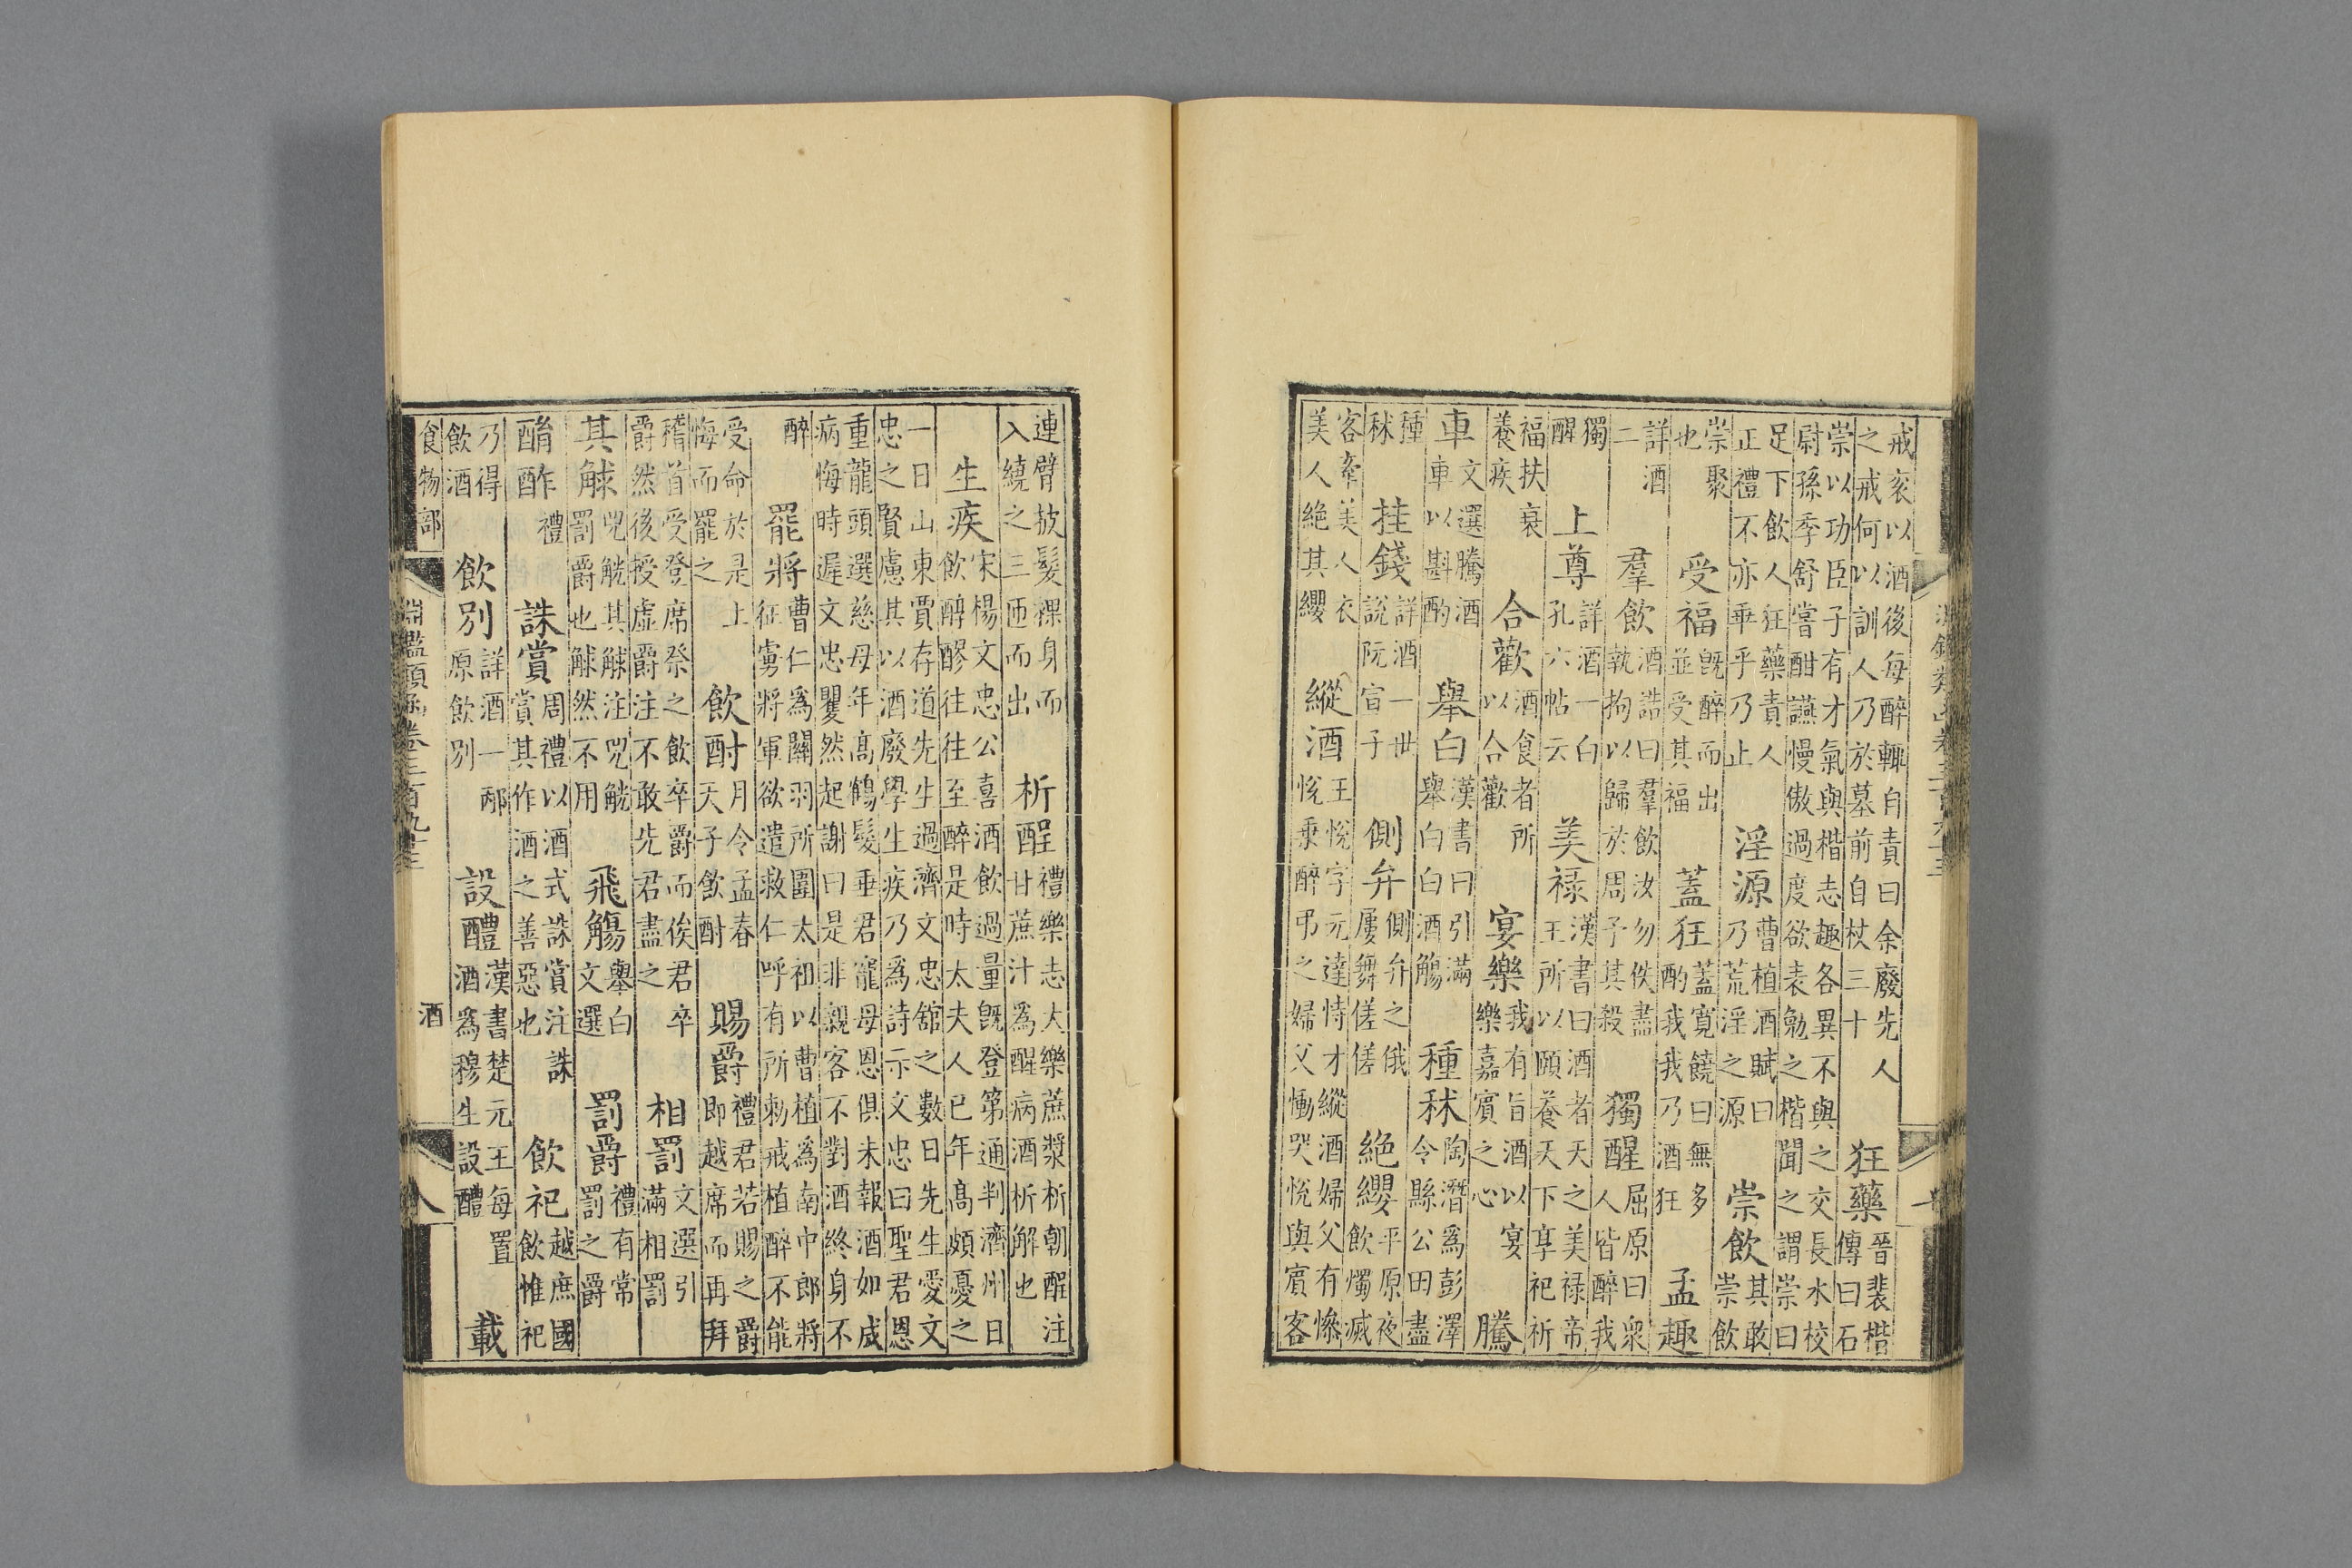 戒衮以酒後每醉輒自責曰余廢先人
之戒何以訓人乃於墓前自杖三十
狂藥
晉裴楷
傳曰石
崇以功臣子有才氣與楷志趣各異不與之交長水校
尉孫季舒嘗酣讌慢傲過度欲表勉之楷聞之謂崇曰
足下飲人狂藥責人
正禮不亦乖乎乃止
淫源
曹植酒賦曰
乃荒淫之源
崇飲
其敢
崇飲
崇聚
也
受福
既醉而出
並受其福
蓋狂
蓋寬饒曰無多
酌我我乃酒狂
孟趣
詳酒
二
羣飲
酒誥曰羣飲汝勿佚盡
執拘以歸於周予其殺
獨醒
屈原曰衆
人皆醉我
獨
醒
上尊
詳酒一白
孔六帖云
美禄
漢書曰酒者天之美禄帝
王所以頤養天下享祀祈
福扶衰
養疾
合歡
酒食者所
以合歡
宴樂
我有旨酒以宴
樂嘉賓之心
騰
車
文選騰酒
車以斟酌
舉白
漢書曰引滿
舉白白酒觴
種秫
陶潛爲彭澤
令縣公田盡
種
秫
挂錢
詳酒一世
說阮宣子
側弁
側弁之俄
屢舞傞傞
絶纓
平原夜
飲燭滅
客牽美人衣
美人絶其纓
縱酒
王悅字元達恃才縱酒婦父有慘
悅乗醉弔之婦父慟哭悅與賓客
連臂披髮裸身而
入繞之三匝而出
析酲
禮樂志大樂蔗漿析朝酲注
甘蔗汁爲醒病酒析解也
生疾
宋楊文忠公喜酒飲過量既登第通判濟州日
飲醇醪往往至醉是時太夫人已年高頗憂之
一日山東賈存道先生過濟文忠舘之數日先生愛文
忠之賢慮其以酒廢學生疾乃爲詩示文忠曰聖君恩
重龍頭選慈母年高鶴髮垂君寵母恩俱未報酒如成
病悔時遲文忠矍然起謝曰是非親客不對酒終身不
醉
罷將
曹仁爲關羽所圍太祖以曹植爲南中郎將
征虜將軍欲遣救仁呼有所勑戒植醉不能
受命於是上
悔而罷之
飲酎
月令孟春
天子飲酎
賜爵
禮君若賜之爵
即越席而再拜
稽首受登席祭之飲卒爵而俟君卒
爵然後授虛爵注不敢先君盡之
相罰
文選引
滿相罰
其觩
兕觥其觩注兕觥
罰爵也觩然不用
飛觴
舉白
文選
罰爵
禮有常
罰之爵
酳酢
禮
誅賞
周禮以酒式誅賞注誅
賞其作酒之善惡也
飲祀
越庶國
飲惟祀
乃得
飲酒
飲別
詳酒一邴
原飲別
設醴
漢書楚元王每置
酒爲穆生設醴
載
食物部
淵鑑類函卷三百九十三
酒
八